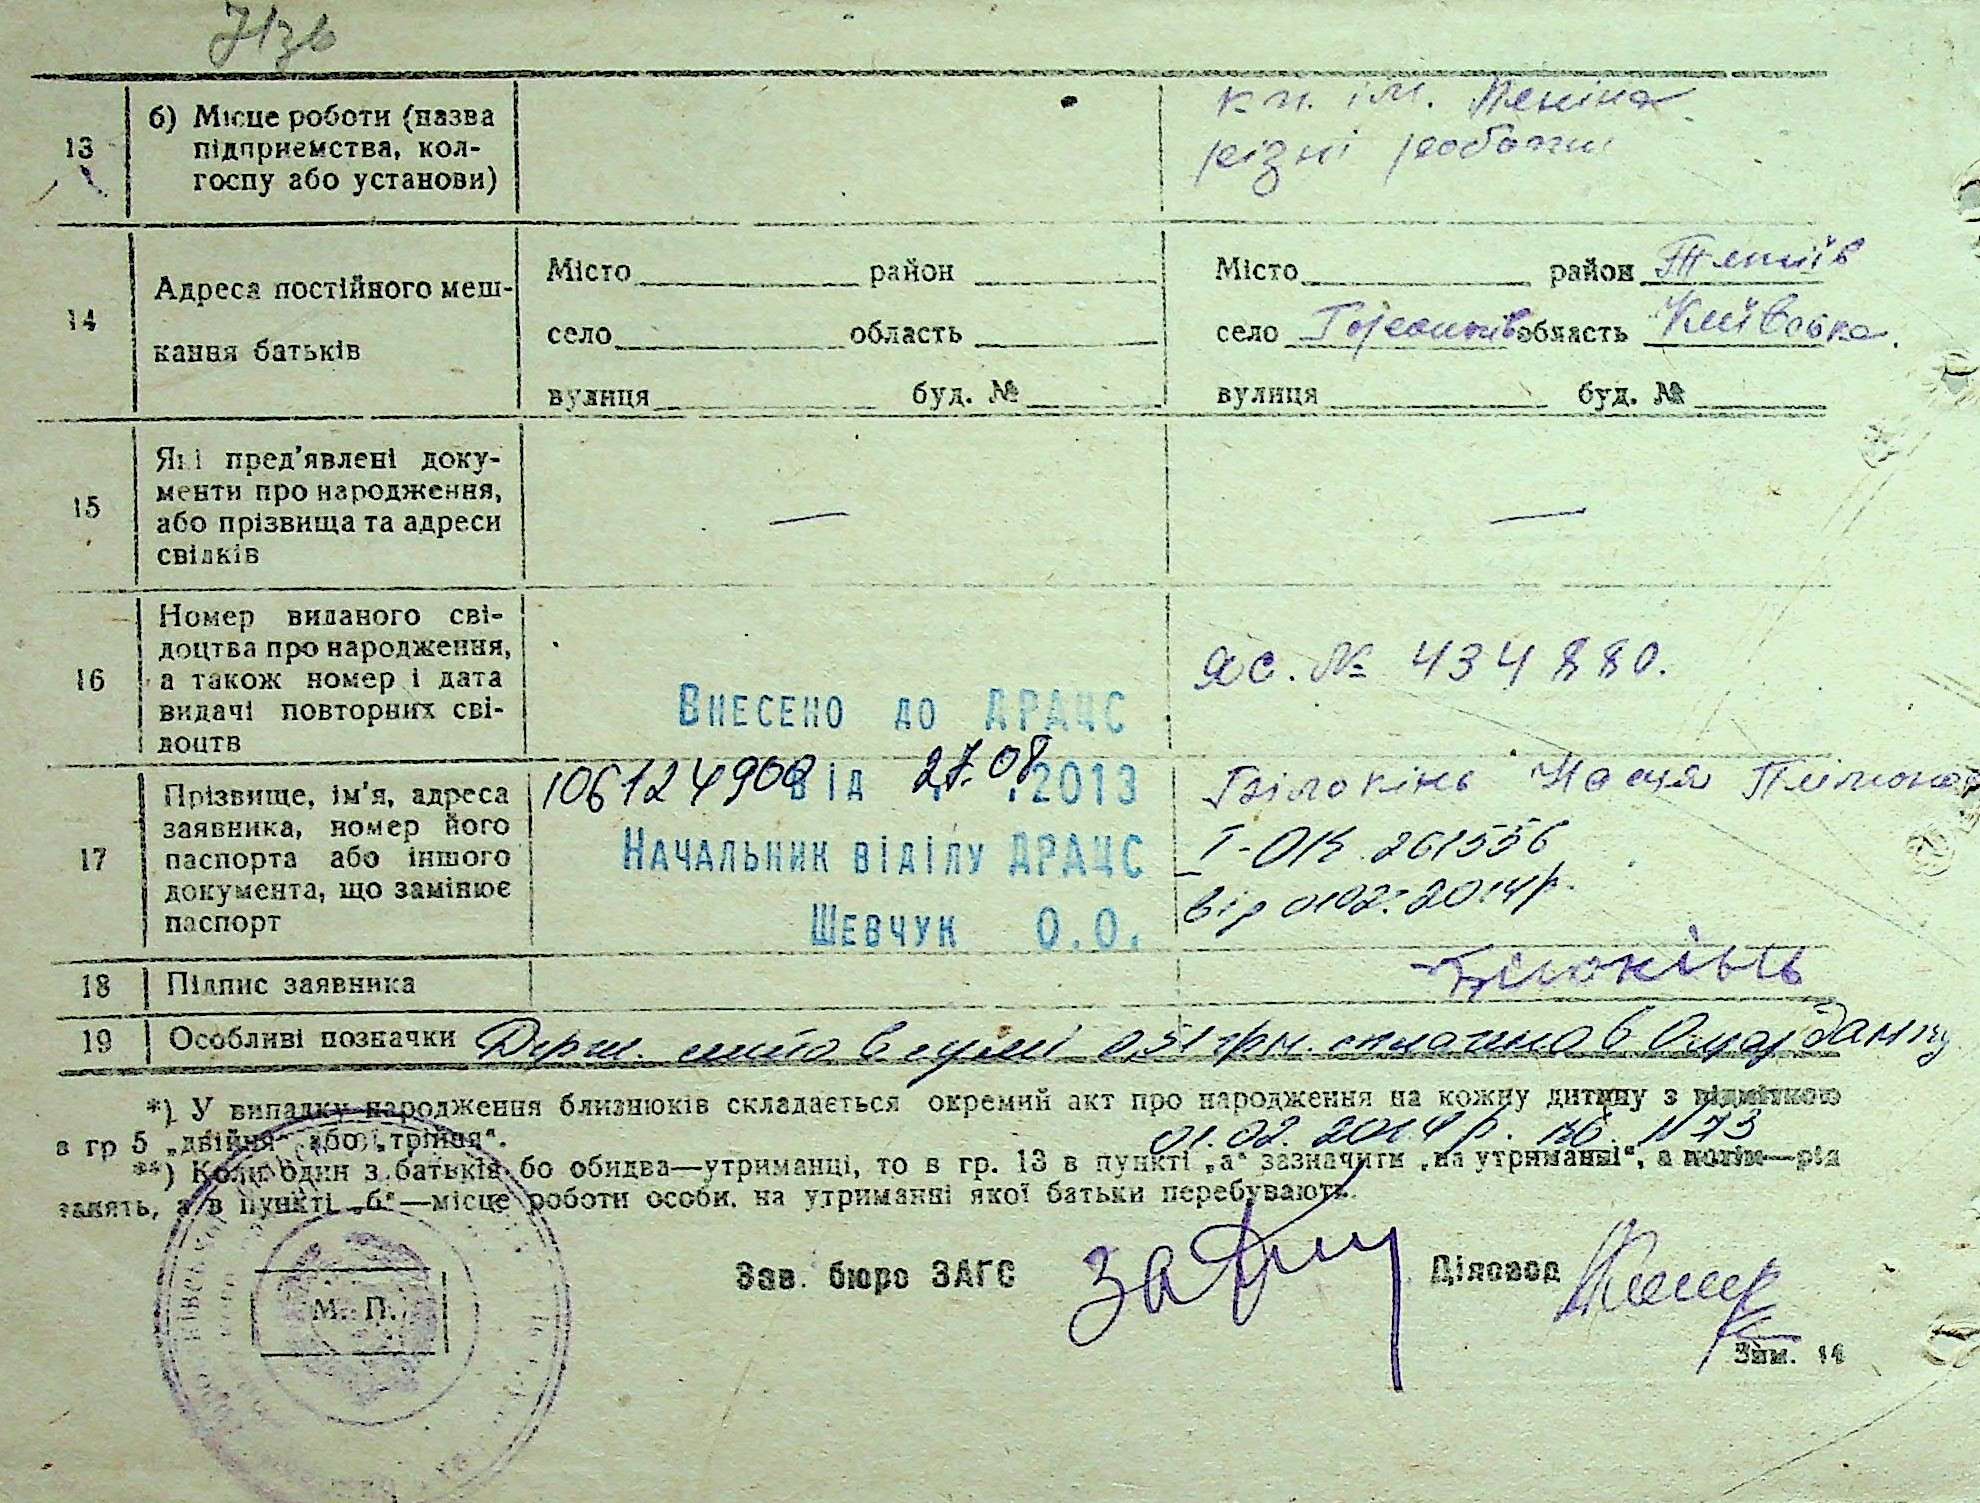 13
б) Місце роботи (назва
підприємства, кол-
госпу або установи)
к-п. ім. Леніна
різні роботи
14
Адреса постійного меш-
кання батьків
Місто район
село область
вулиця буд. №
Місто район
село область Київська.
вулиця буд. №
15
Які пред'явлені доку-
менти про народження,
або прізвища та адреси
свідків
—
—
16
Номер виданого сві-
доцтва про народження,
а також номер і дата
видачі повторних сві-
доцтв
ЯС. № 434880.
Внесено до ДРАЦС
від 27.08.2013
Начальник відділу ДРАЦС
Шевчук О.О.
17
Прізвище, ім'я, адреса
заявника, номер його
паспорта або іншого
документа, що замінює
паспорт
Білокінь
I-ОК 261556
від 01.02.2014р.
18
Підпис заявника
Білокінь
19
Особливі позначки Держ. мито в сумі 0,51 грн. сплачено в Ощадбанку
01.02.2014р. кв. №73
*) У випадку народження близнюків складається окремий акт про народження на кожну дитину з відміткою
в гр 5 „двійня“ або „тройня“.
**) Коли один з батьків бо обидва—утриманці, то в гр. 13 в пункті „а“ зазначити „на утриманні“, а потім—рід
занять, а в пункті „б“—місце роботи особи, на утриманні якої батьки перебувають.
Зав. бюро ЗАГС
Діловод
М. П.
Зам. 14